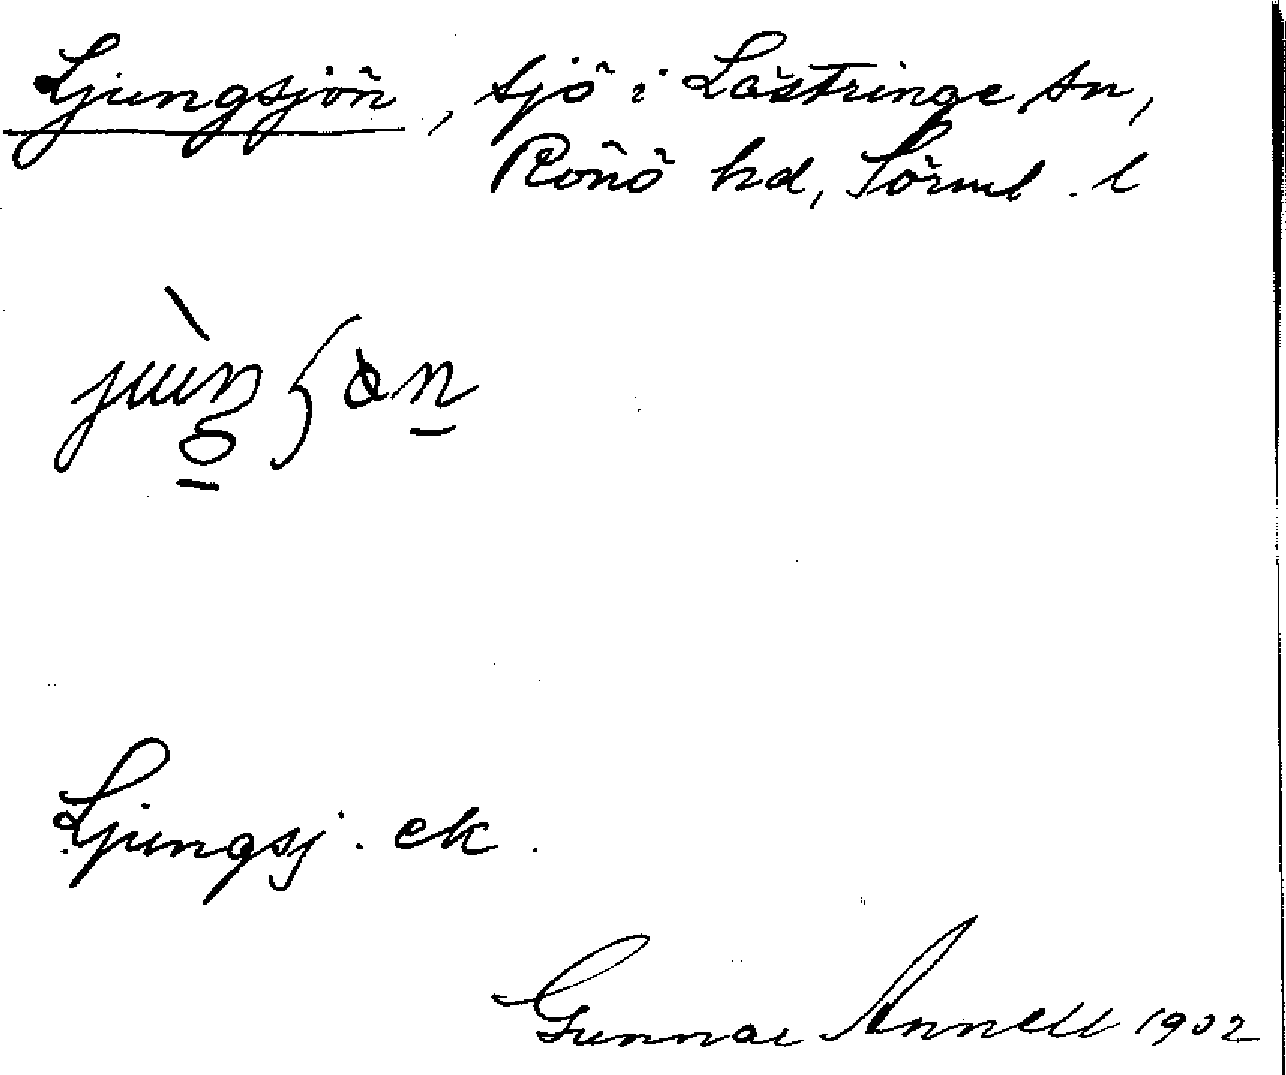 Ljungsjön, sjö i Lästringe sn,
Rönö hd, Sörml. l
Ljungsj. ek.
Gunnar Annell 1902